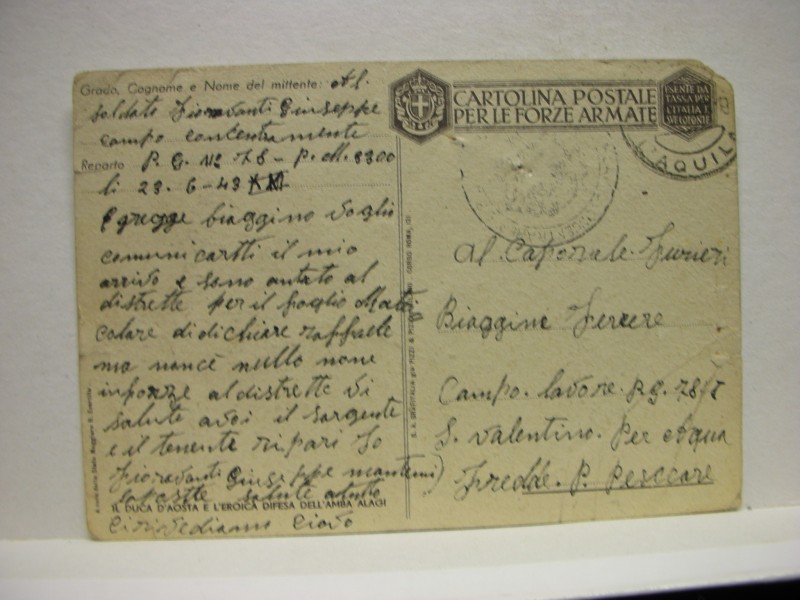 Grado, Cognome e Nome del mittente: Al
soldato Fioravanti Giuseppe
campo concentramente
Reparto P. G. N2 78 - P. M. 3300
li 23. 6 - 43
Egregge biaggino voglio
comunicartti il mio
arrivo e sono antato al
distrette per il foglio Matri
colare di dichiare raffaele
ma noncè nullo none
inporze al distrette Vi
salute avoi il sargente
e il tenente ripari Io
Fioravanti Giuseppe mantemi
saposte salute atutto
IL DUCA D'AOSTA E L'EROICA DIFESA DELL'AMBA ALAGI
Cirivediamo Ciavo
CARTOLINA POSTALE
PER LE FORZE ARMATE
ESENTE DA
TASSA PER
L'ITALIA E
L'AQUILA
Al Caporale Furieri
Biaggine
Campo. lavore. P.G. 78/
S. Valentino. Per Acqua
Fredde. P. Pesccare